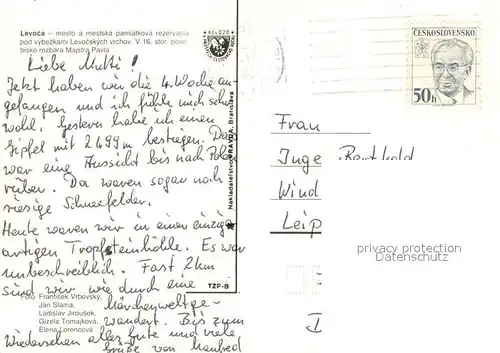 Levoča – mesto a mestská pamiatková rezervácia
pod výbežkami Levočských vrchov. V 16. stor. pôso-
bisko rezbára Majstra Pavla
Liebe Mutti!
Jetzt haben wir die 4. Woche an-
gefangen und ich fühle mich sehr
wohl. Gestern habe ich einen
Gipfel mit 2499m bestiegen. Da
war eine Aussicht bis nach Polen
rüber. Da waren sogar noch
riesige Schneefelder.
Heute waren wir in einer einzig-
artigen Tropfsteinhöhle. Es war
unbeschreiblich. Fast 2km
sind wir wie durch eine
Märchenweltge-
wandert. Bis zum
Wiedersehen alles Gute und viele
Grüße von Manfred
František Vrbovský,
Ján Sláma,
Ladislav Jiroušek,
Gizela Tomajková,
Elena Lorencová
TZP-B
Nakladateľstvo PRAVDA, Bratislava
ČESKOSLOVENSKO
50h
Frau
Inge Berthold
Wind
Leip
privacy protection
Datenschutz